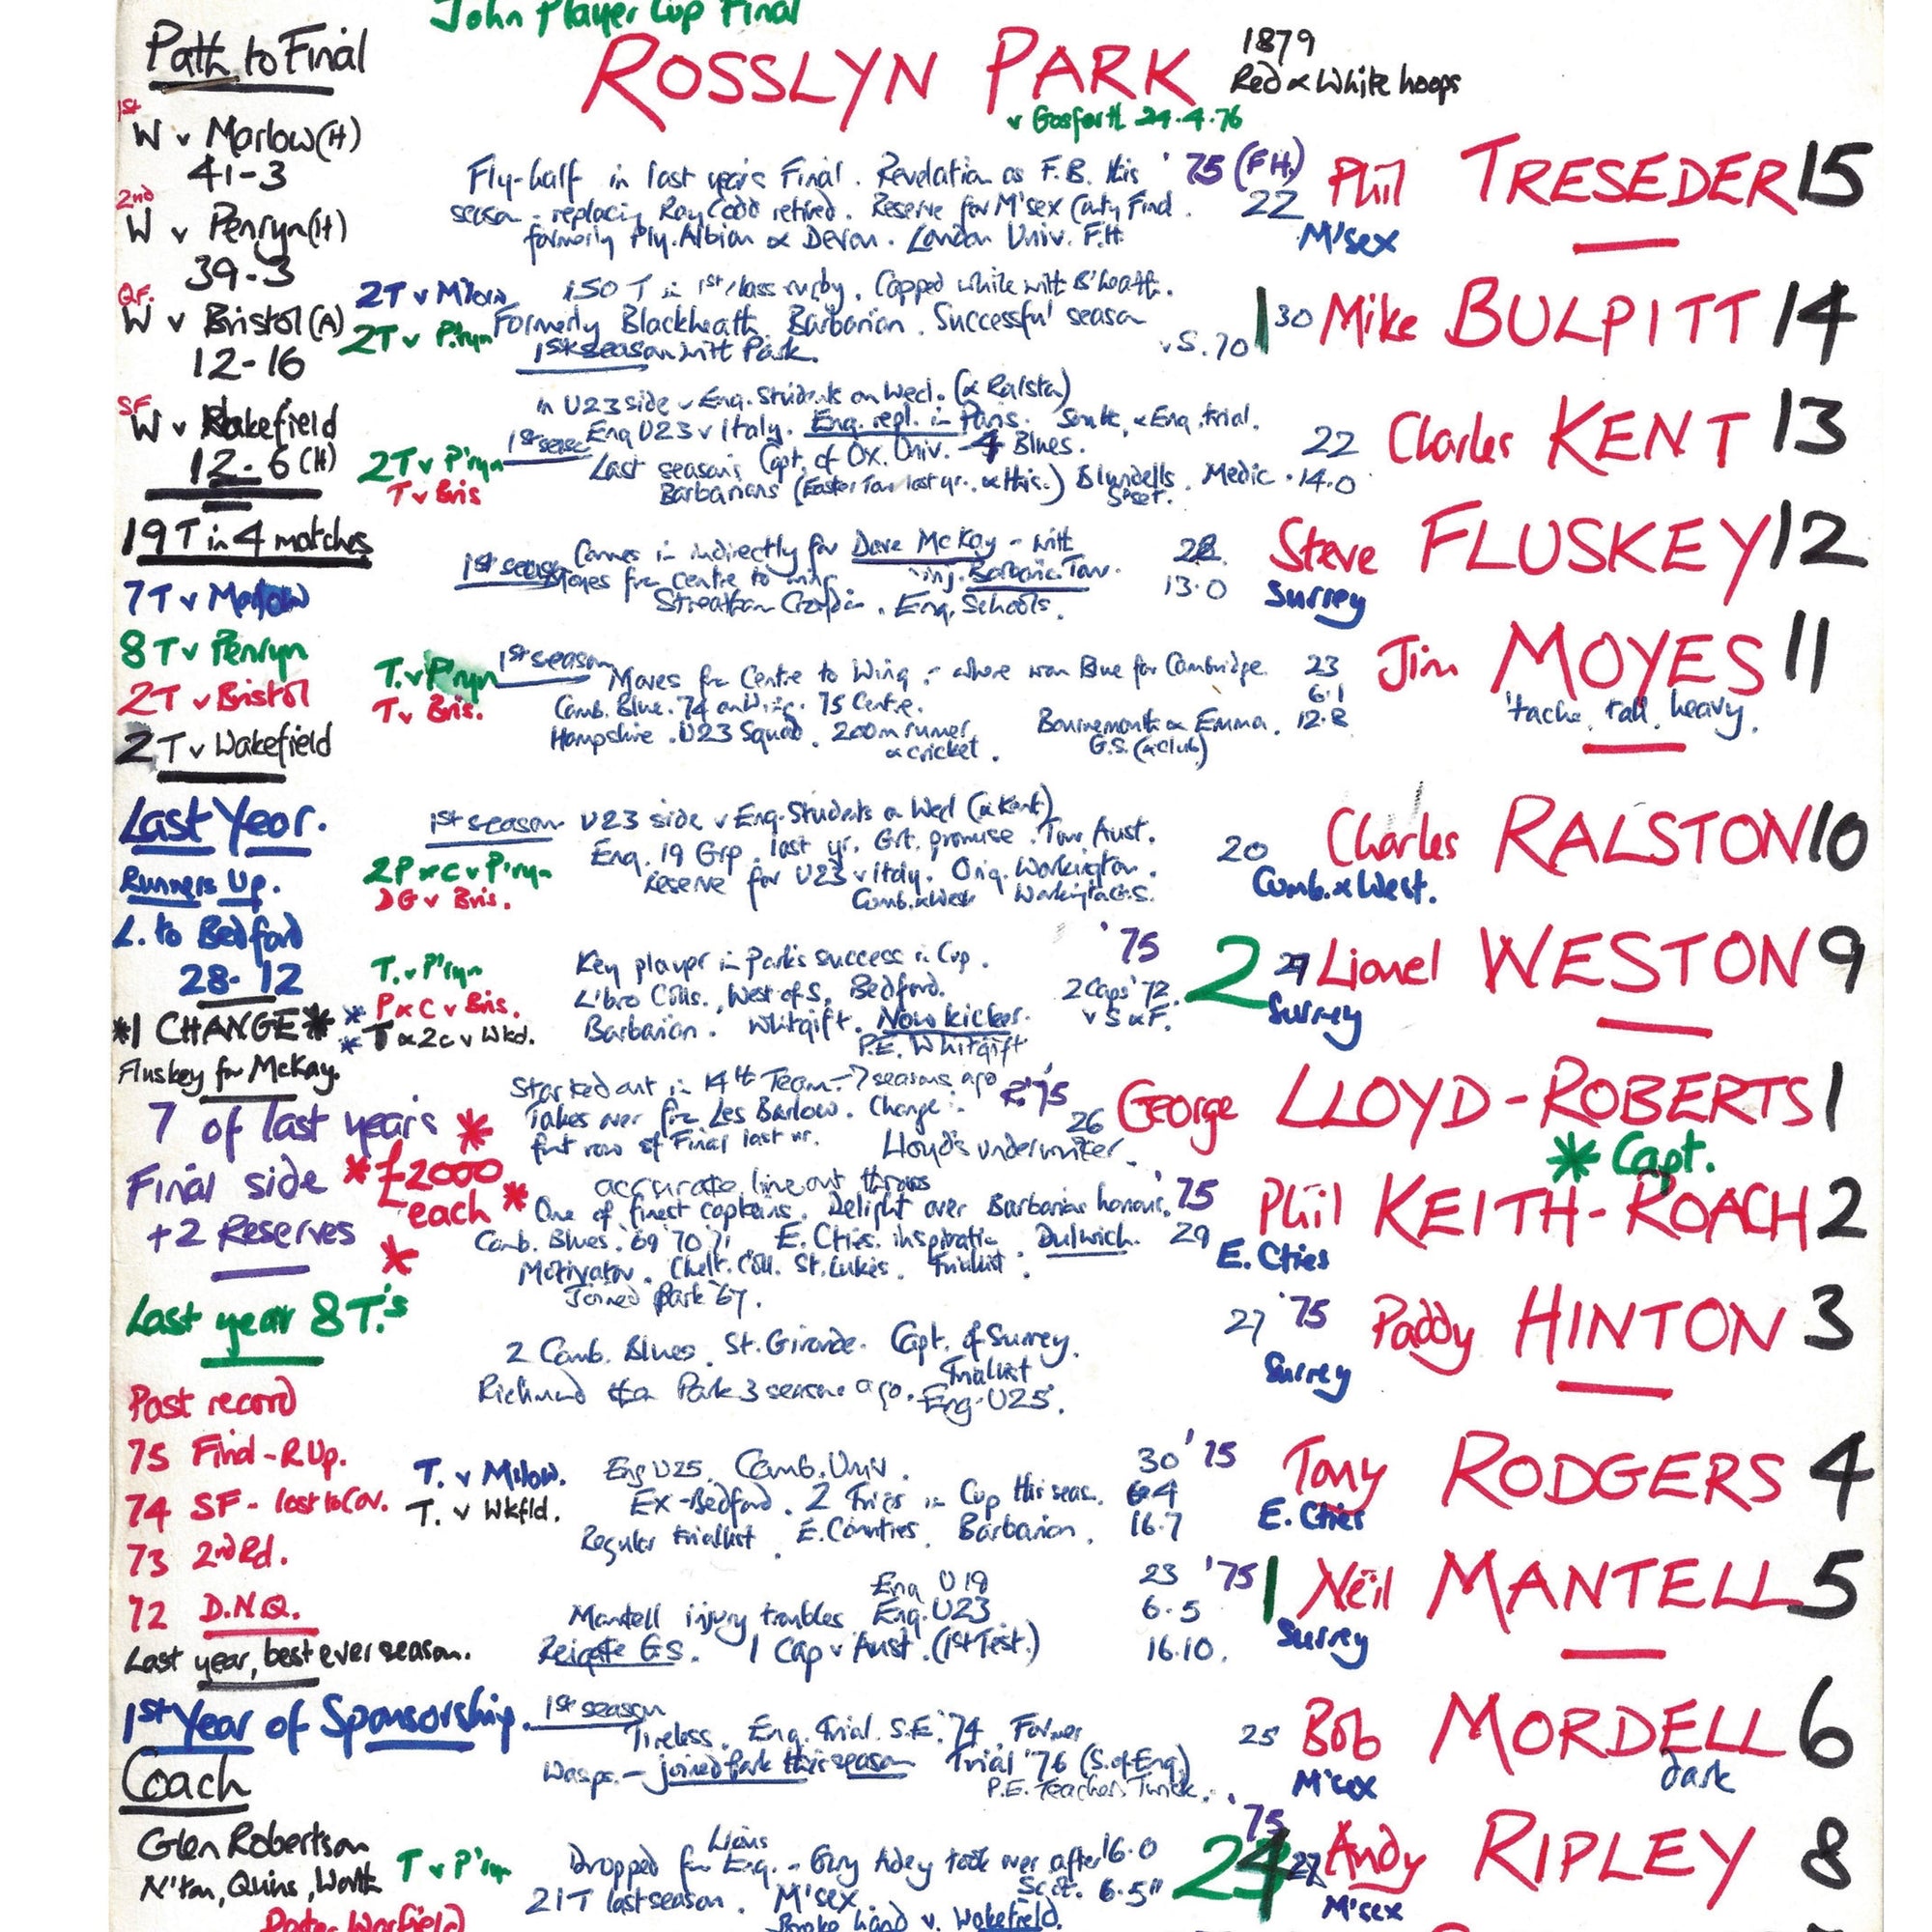 John Player Cup Final
ROSSLYN PARK
1879
Red & White hoops
v Gosforth 24.4.76
Path to Final
1st
W v Marlow (H)
41-3
2nd
W v Penryn (H)
39-3
QF.
W v Bristol (A)
12-16
SF
W v Wakefield
12-6 (H)
19 T in 4 matches
7T v Marlow
8 T v Penryn
2T v Bristol
2 T v Wakefield
Last Year.
Runners Up.
L. to Bedford
28-12
*1 CHANGE*
Fluskey for McKay.
7 of last year's
Final side
+2 Reserves
* £2000
each *
Last year 8 T.'s
Past record
75 Final - R.Up.
74 SF - lost to Cov.
73 2nd Rd.
72 D.N.Q.
Last year, best ever season.
1st Year of Sponsorship.
Coach
Glen Robertson
N'ton, Quins,
Fly-half in last year's Final. Revelation as F.B. this '75 (FH) Phil TRESEDER 15
season - replacing Ray Codd retired. Reserve for M'sex County Final. 22
formerly Ply. Albion & Devon. London Univ. F.H. M'sex
2T v M'low 150 T in 1st class rugby. Capped while with B'heath. 1 30 Mike BULPITT 14
2T v P'ryn Formerly Blackheath. Barbarian. Successful season v S. 70
1st season with Park.
in U23 side v Eng. Students on Wed. (& Ralston)
1st season Eng U23 v Italy. Eng. repl. in Paris. South, & Eng. trial. 22 Charles KENT 13
2T v P'ryn Last season's Capt. of Ox. Univ. - 4 Blues.
T v Bris Barbarians (Easter Tour last yr., & this.) Blundells. Medic. 14.0
S'set.
Comes in indirectly for Dave McKay - with 28 Steve FLUSKEY 12
1st season Moves from centre to wing inj. Barbarian Tour. 13.0 Surrey
Streatham Croydon. Eng. Schools.
T. v P'ryn 1st season Moves from Centre to Wing - where won Blue for Cambridge. 23 Jim MOYES 11
T v Bris. Camb. Blue. 74 on Wing. 75 Centre. 6.1 'tache. tall. heavy.
Hampshire. U23 Squad. 200m runner & cricket. Bournemouth & Emma. 12.8
G.S. (& club)
1st season U23 side v Eng. Students on Wed (& Kent) Charles RALSTON 10
Eng. 19 Grp. last yr. Grt. promise. Tour Aust. 20
2P & C v P'ryn Reserve for U23 v Italy. Orig. Workington. Cumb. & West.
DG v Bris. Cumb. & West Workington G.S.
T. v P'ryn Key player in Park's success in Cup. '75 2 29 Lionel WESTON 9
* P & C v Bris. Libro Coll., West of S, Bedford. 2 Caps '72. Surrey
* T & 2c v Wkd. Barbarian. Whitgift. Now kicker. v S & F.
P.E. Whitgift
Started out in 14th Team - 7 seasons ago R. '75 George LLOYD-ROBERTS 1
Takes over from Les Barlow. Change in 26
frnt row of Final last yr. Lloyd's underwriter.
* Capt.
accurate line out throws
One of finest captains. Delight over Barbarian honour. '75 Phil KEITH-ROACH 2
Camb. Blues. '69 '70 '71 E. Cties. inspiration Dulwich. 29 E. Cties
Motivator. Chelt. Coll. St. Lukes. trialist.
Joined Park '67.
27 '75 Paddy HINTON 3
2 Camb. Blues. St. Capt. of Surrey. Surrey
Trialist
Richmond then Park 3 seasons ago. Eng. U25.
T. v M'low. Eng U25. Camb. Univ. 30 '75 Tony RODGERS 4
T. v Wkfld. Ex-Bedford. 2 Tries in Cup this seas. 6.4 E. Cties
Regular triallist. E. Counties Barbarian. 16.7
Eng U19 23 '75 1 Neil MANTELL 5
Mantell injury troubles Eng. U23 6.5 Surrey
Reigate G.S. 1 Cap v Aust. (1st Test.) 16.10.
1st season Tireless. Eng. Trial. S.E. '74. Former 25 Bob MORDELL 6
Wasps. - joined Park this season Trial '76 (S. of Eng) M'sex dark
P.E. Teacher. Twick.
'75
Lions
T v P'ryn Dropped from Eng. - Gary Adey took over after 16.0 24 27 Andy RIPLEY 8
21T last season. M'sex Scot. 6.5" M'sex
Broke hand v. Wakefield.